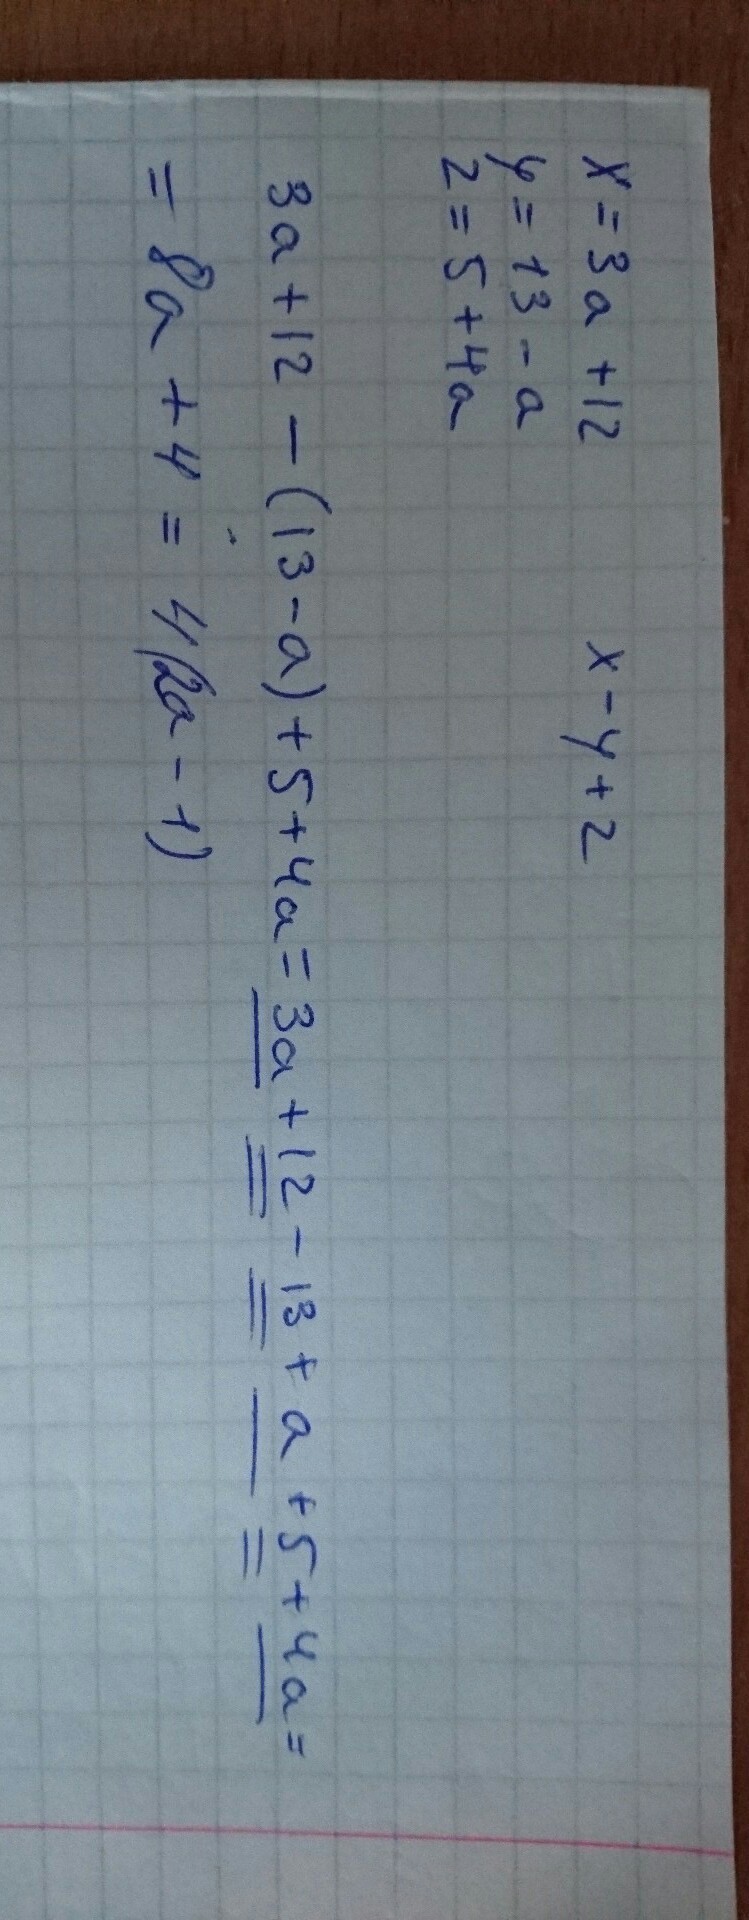 x = 3a + 12    x - y + z
y = 13 - a
z = 5 + 4a
3a + 12 - (13 - a) + 5 + 4a = 3a + 12 - 13 + a + 5 + 4a =
= 8a + 4 = 4(2a - 1)